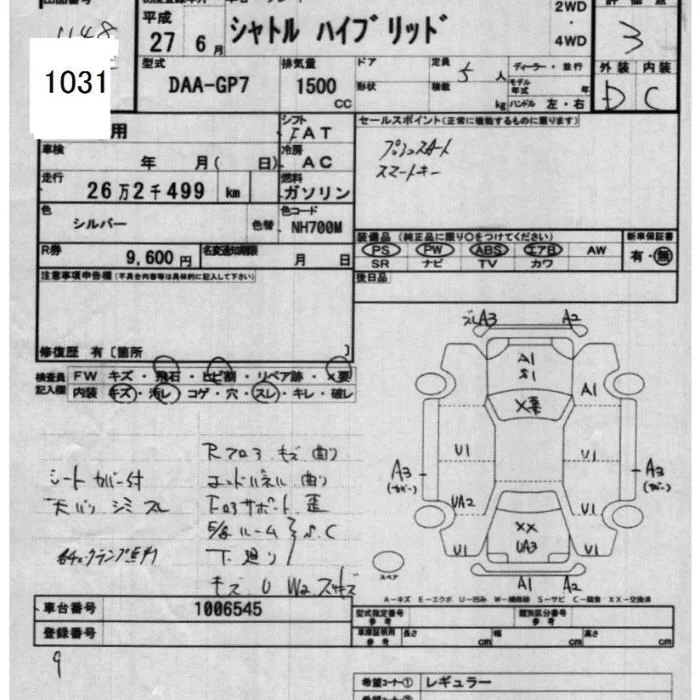 平成
27 6月 シャトル ハイブリッド 2WD・4WD
3
1031
型式 排気量 ドア 定員 5人 ディーラー・並行 外装 内装
DAA-GP7 1500 CC 形状 積載 kg モデル年式 年 D C
ハンドル 左・右
用 シフト FAT セールスポイント(正常に機能するものに限ります)
車検 年 月( 日) 冷房 AC プッシュスタート
走行 26万2千499 km 燃料 ガソリン スマートキー
色 シルバー 色替 色コード NH700M
装備品(純正品に限り○をつけてください) 新車保証書
R券 9,600円 名変通知期限 月 日 PS PW ABS エアB AW 有・無
SR ナビ TV カワ
注意事項申告欄(不具合内容等は具体的に記入して下さい) 後日品
修復歴 有〔箇所 〕
検査員記入欄 FW キズ・飛石・ヒビ割・リペア跡・×要
内装 キズ・汚レ・コゲ・穴・スレ・キレ・破レ
ズレA3 A2
A1
S1
A1
×要
U1 U1
A3 A2
(カバー) (カバー)
UA2 U1
XX
UA3
U1 U1
スペア A1 A2
Rフロア キズ 曲り
シートカバー付 エンドパネル 曲り
天バリ シミ スレ
ルーム
下廻り S.C
キズ U W2
A-キズ E-エクボ U-凹み W-補修跡 S-サビ C-腐食 XX-交換済
車台番号 1006545
登録番号
型式指定番号 参考 類別区分番号 参考
車庫証明用 参考 長さ cm 幅 cm 高さ cm
9
希望コーナー① レギュラー
希望コーナー②